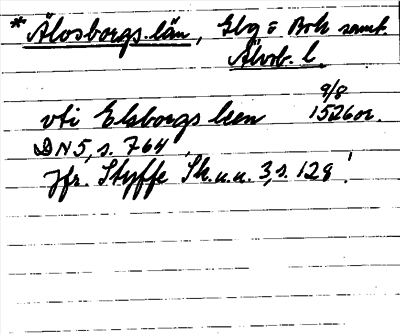 * Älvsborgs län, Gbg o Boh samt
Älvsb. l.
9/8
vti Elsborgs leen 1526 or.
DN 5, s. 764
Jfr. Styffe Sk.u.u. 3, s. 129!